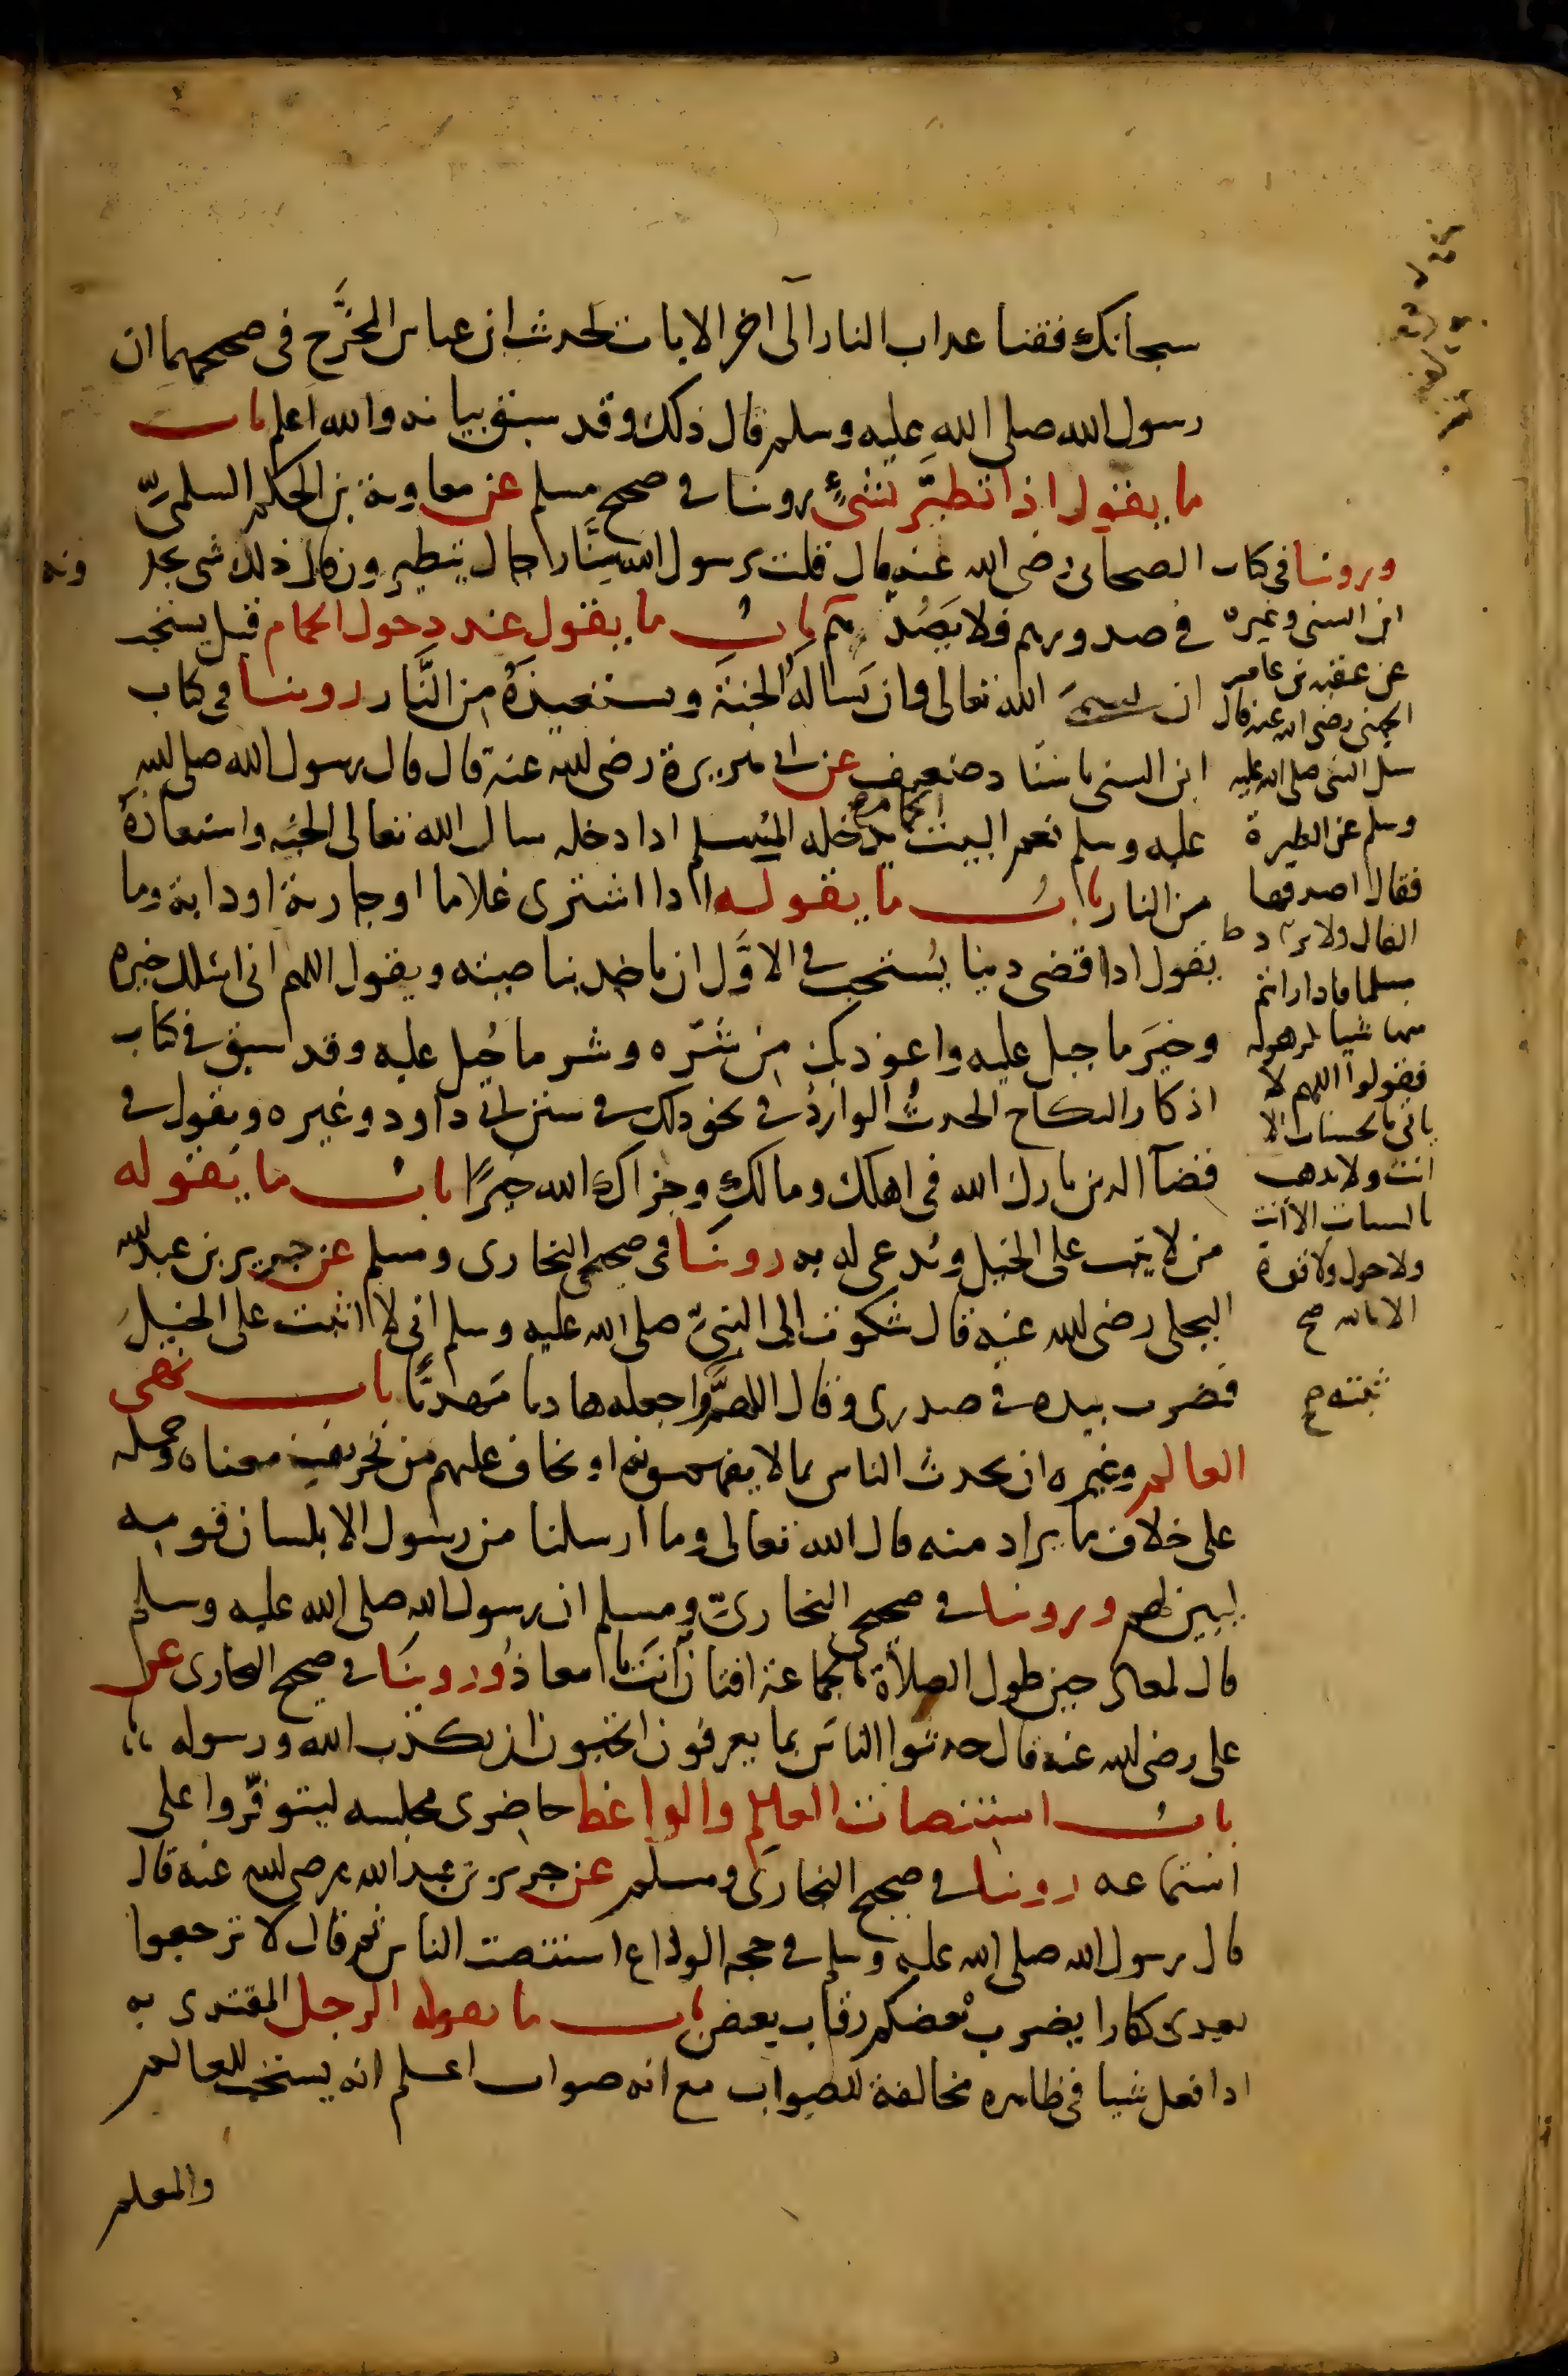 سبحانك فقنا عذاب النار الى اخر الايات لحديث ابن عباس المخرَّج فى صحيحهما ان
رسول الله صلى الله عليه وسلم قال ذلك وقد سبق بيانه والله اعلم باب
ما يقول اذا تطيَّر بشىءٍ روينا فى صحيح مسلم عن معاوية بن الحكم السلمىّ
الصحابى رضى الله عنه قال قلت يرسول الله منَّا رجال يتطيرون قال ذلك شى يجد
ونه
فى صدورهم فلا يَصُدّنهم بابُ ما يقول عند دخول الحمام قيل يستحب
ان يسمى الله تعالى وان يَساله الجنة ويستعيذهُ من النَّار روينا فى كتاب
ابن السنى باسنا د ضعيف عن ابى هريرة رضى الله عنه قال قال رسول الله صلى الله
عليه وسلم نعم البيت الحمام يدخله المُسلم اذا دخله سال الله تعالى الجنه واستعاذهُ
من النار بابُ ما يقوله اذا اشترى غلاما او جارية او دابة وما
يقول اذا قضى دينا يُستحب فى الاوَّل ان ياخذ بناصيته ويقول اللهم انى اسئلك خيره
وخيَر ما جبل عليه واعوذ بك من شرّه وشر ما جُبل عليه وقد سبق فى كتاب
اذكار النكاح الحديثُ الواردُ فى نحو ذلك فى سنن ابى داود وغيره ويقول فى
قضآ الدين بارك الله فى اهلك ومالكِ وجزاك الله خيرًا بابُ ما يَقوله
من لا يثبت على الخيل ويُدعى له به روينَا فى صحيحى البخارى ومسلم عن جرير بن عبد الله
البجلى رضى الله عنه قال شكوت الى النبىّ صلى الله عليه وسلم انى لا اثبت على الخيل
فضرب بيده فى صدرى وقال اللهمَّ واجعله هاديا مَهديًّا باب نهى
العالم وغيره ان يحدث الناس بما لا يفهمونه او يخاف عليهم من تحريف معناه وحمله
على خلاف ما يراد منه قال الله تعالى وما ارسلنا من رسول الا بلسان قومه
ليبين لهم وروينا فى صحيحى البخارىّ ومسلم ان رسول الله صلى الله عليه وسلم
قال لمعاذ حين طول الصلاة بالجماعة افتان اَنتَ يا معاذُ وروينَا فى صحيح البخارى عن
على رضى الله عنه قال حدثوا الناسَ بما يعرفون اتحبون ان يكذب الله ورسوله
بابُ استنصات العالم والواعظ حاضرى مجلسه ليتوفّروا على
استماعه روينا فى صحيح البخارى ومسلم عن جرير بن عبد الله رضى الله عنه قال
قال رسول الله صلى الله عليه وسلم فى حجه الوداع استنصت الناس ثم قال لا ترجعوا
بعدى كفارا يضرب بعضكم رقاب بعض باب ما يقوله الرجل المقتدى به
اذا فعل شيا فى ظاهره مخالفة للصواب مع انه صواب اعلم انه يستحب للعالم
والمعلم
وروينا فى كتاب
ابن السنى وغيره
عن عقبه بن عامر
الجهنى رضى الله عنه قال
سئل النبى صلى الله عليه
وسلم عن الطيرة
فقال اصدقها
الفال ولا يرد
مسلما فاذا رايتم
منها شيا تكرهونه
فقولوا اللهم لا
ياتى بالحسنات الا
انت ولا يذهب
بالسيات الا انت
ولا حول ولا قوة
الا بالله صح
ثبته ح